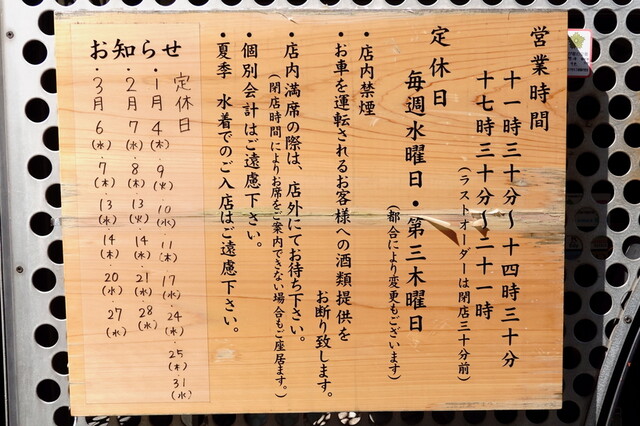 営業時間
十一時三十分〜十四時三十分
十七時三十分〜二十一時
(ラストオーダーは閉店三十分前)
定休日
毎週水曜日・第三木曜日
(都合により変更もございます)
・店内禁煙
・お車を運転されるお客様への酒類提供を
お断り致します。
・店内満席の際は、店外にてお待ち下さい。
(閉店時間によりお席をご案内できない場合もご座居ます。)
・個別会計はご遠慮下さい。
・夏季 水着でのご入店はご遠慮下さい。
お知らせ
定休日
・1月 4(木) 9(火) 10(水) 11(木) 17(水) 24(水) 25(木) 31(水)
・2月 7(水) 8(木) 13(火) 14(水) 21(水) 28(水)
・3月 6(水) 7(木) 13(水) 14(木) 20(水) 27(水)